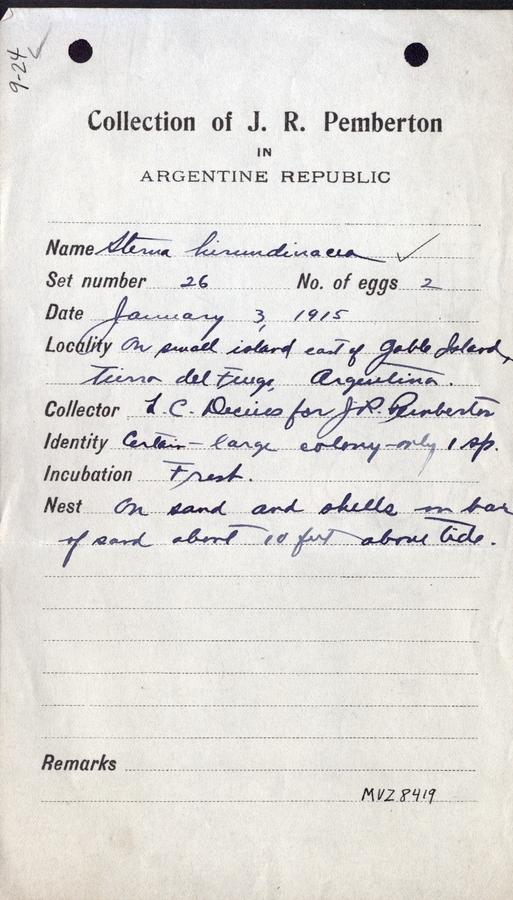 9-24 ✓
Collection of J. R. Pemberton
IN
ARGENTINE REPUBLIC
Name Sterna hirundinacea ✓
Set number 26 No. of eggs 2
Date January 3, 1915
Locality On small island east of Gable Island,
Tierra del Fuego, Argentina.
Collector L. C. Decius for J.R. Pemberton
Identity Certain - large colony - only 1 sp.
Incubation Fresh.
Nest On sand and shells on bar
of sand about 10 feet above tide.
Remarks
MVZ 8419